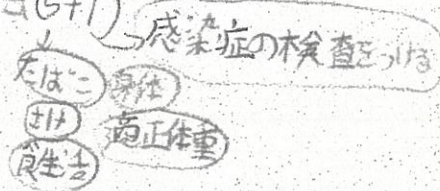 (5+1)
感染症の検査をつける
たばこ 身体
さけ 適正体重
食生活